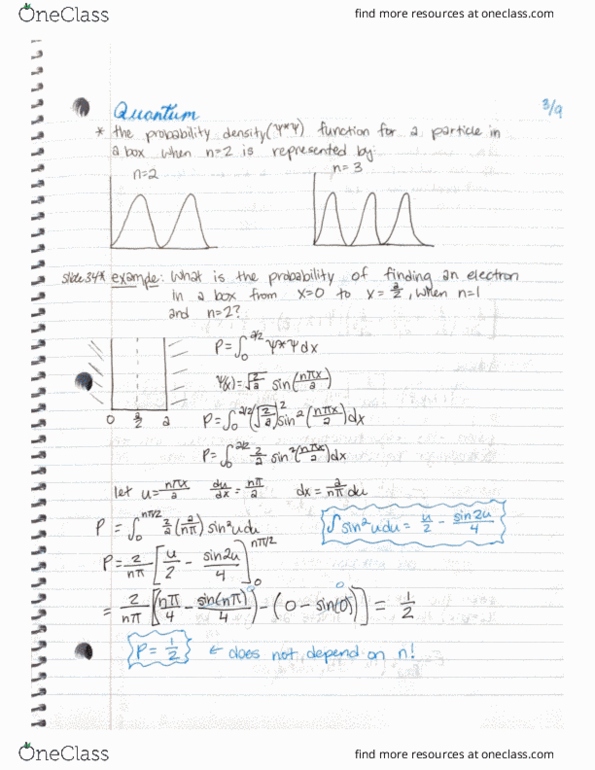 OneClass
find more resources at oneclass.com
Quantum
3/9
* the probability density (Ψ*Ψ) function for a particle in
a box when n=2 is represented by:
n=2
n=3
slide 34* example: What is the probability of finding an electron
in a box from x=0 to x=a/2, when n=1
and n=2?
P=∫₀^(a/2) Ψ*Ψdx
Ψ(x)=√(2/a) sin(nπx/a)
0 a/2 a
P=∫₀^(a/2) (√(2/a))² sin²(nπx/a)dx
P=∫₀^(a/2) 2/a sin²(nπx/a)dx
let u=nπx/a du/dx=nπ/a dx=a/nπ du
P=∫₀^(nπ/2) 2/a (a/nπ) sin²udu
∫sin²udu=u/2 - sin2u/4
P=2/nπ [u/2 - sin2u/4]₀^(nπ/2)
=2/nπ [(nπ/4 - sin(nπ)/4) - (0-sin(0))] = 1/2
0
0
P=1/2 ← does not depend on n!
OneClass
find more resources at oneclass.com